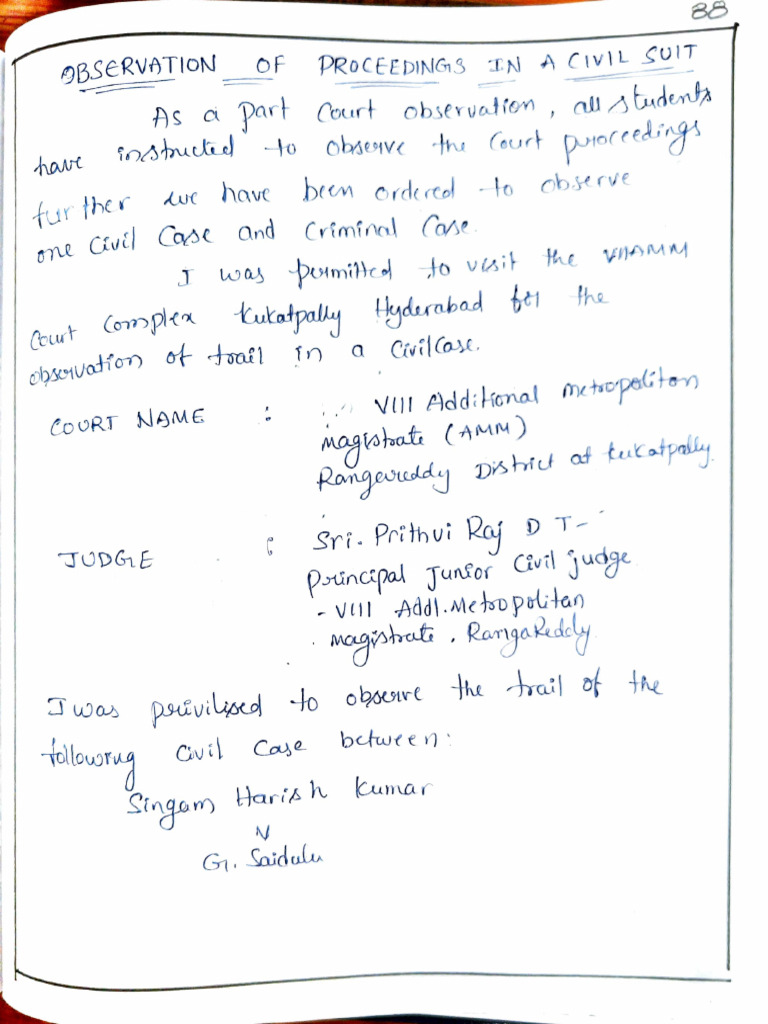 38
OBSERVATION OF PROCEEDINGS IN A CIVIL SUIT
As a part Court observation, all students
have instructed to observe the Court proceedings
further we have been ordered to observe
one Civil Case and Criminal Case.
I was permitted to visit the VIIIAMM
Court complex Kukatpally Hyderabad for the
observation of trail in a Civil Case.
COURT NAME : VIII Additional metropolitan
magistrate (AMM)
Rangareddy District at kukatpally.
JUDGE : Sri. Prithvi Raj D T-
principal Junior Civil judge
- VIII Addl. Metropolitan
magistrate, RangaReddy
I was privilised to observe the trail of the
following Civil Case between:
Singam Harish Kumar
V
G. Saidulu